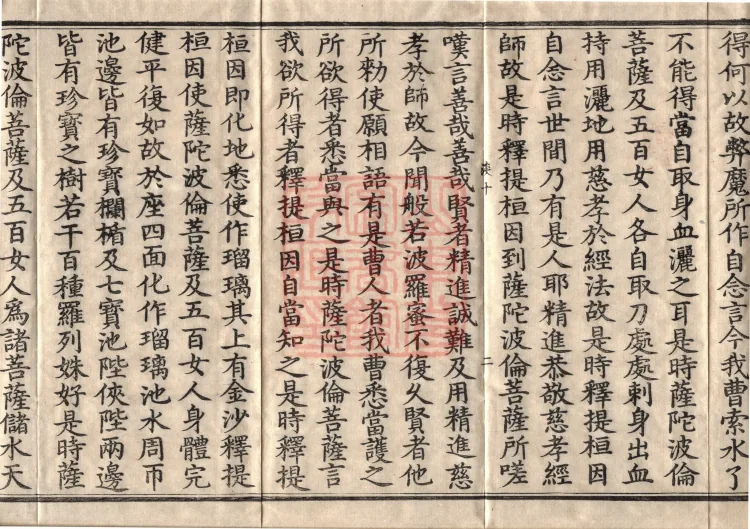 得何以故弊魔所作自念言今我曹索水了
不能得當自取身血灑之耳是時薩陀波倫
菩薩及五百女人各自取刀處處剌身出血
持用灑地用慈孝於經法故是時釋提桓因
自念言世間乃有是人耶精進恭敬慈孝經
師故是時釋提桓因到薩陀波倫菩薩所嗟
二
嘆言善哉善哉賢者精進誠難及用精進慈
孝於師故今聞般若波羅蜜不復久賢者他
所勑使願相語有是曹人者我曹悉當護之
所欲得者悉當與之是時薩陀波倫菩薩言
我欲所得者釋提桓因自當知之是時釋提
桓因即化地悉使作瑠璃其上有金沙釋提
桓因使薩陀波倫菩薩及五百女人身體完
健平復如故於座四面化作瑠璃池水周帀
池邊皆有珍寶欄楯及七寶池陛俠陛兩邊
皆有珍寶之樹若干百種羅列姝好是時薩
陀波倫菩薩及五百女人爲諸菩薩儲水天